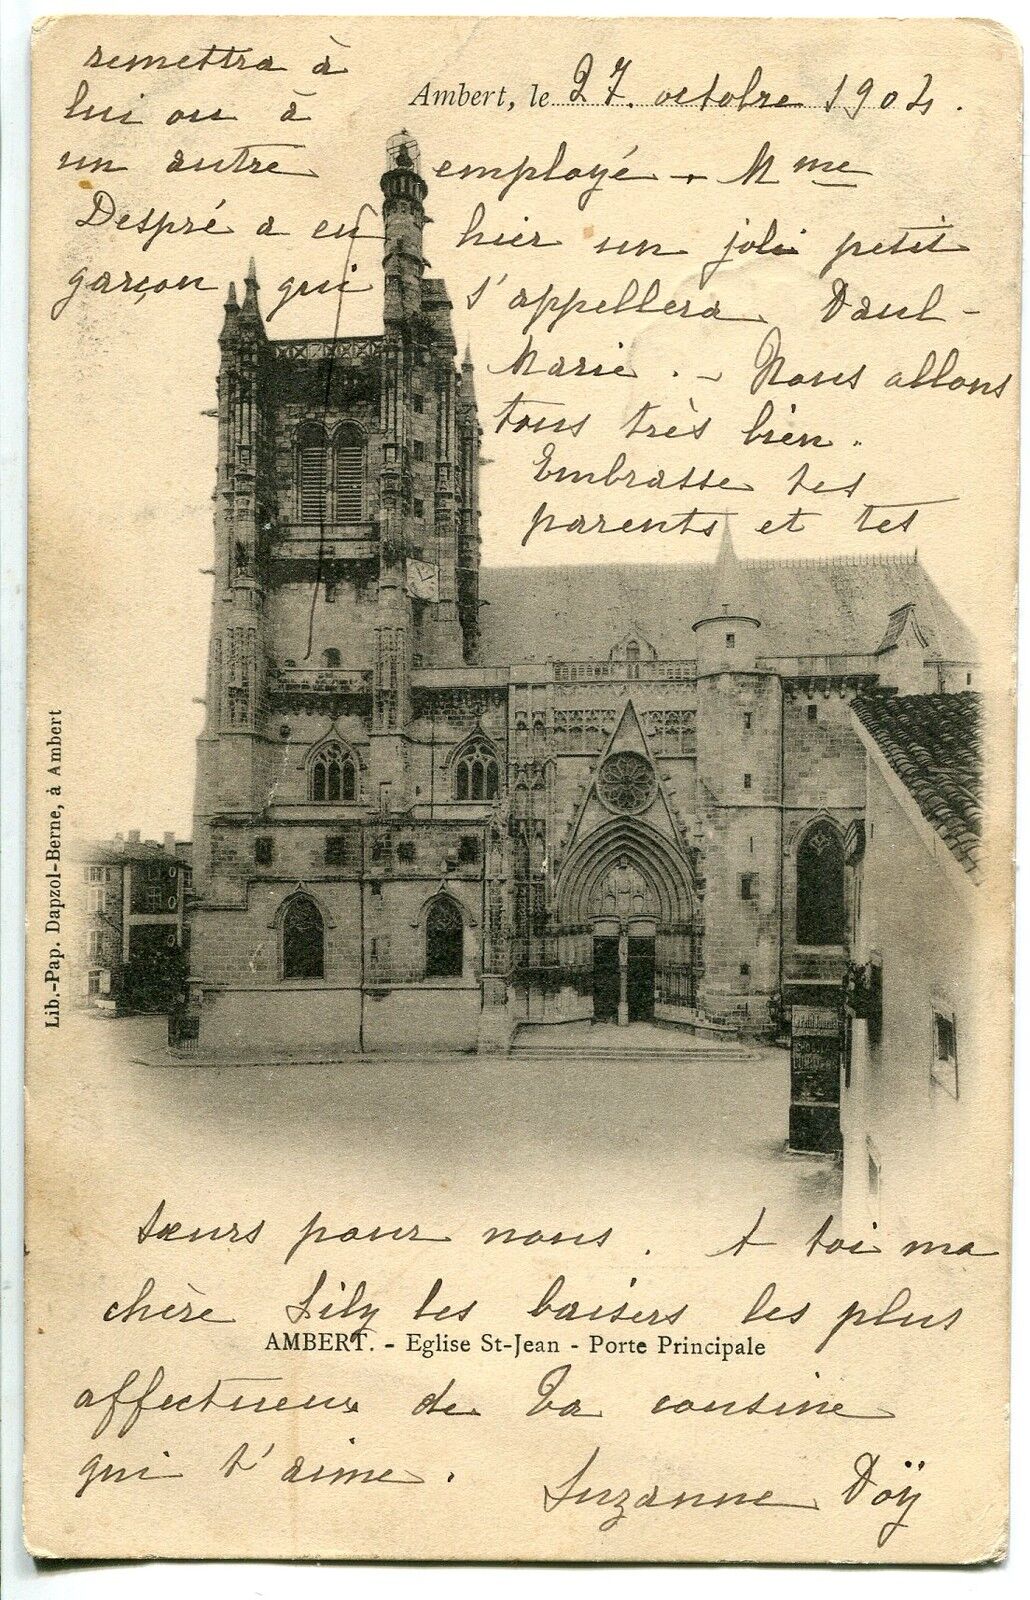 remettra à
Ambert, le 27 octobre 1904.
lui ou à
un autre employé - Mme
Despré a eu hier un joli petit
garçon qui s'appellera Paul-
Marie. - Nous allons
tous très bien.
Embrasse tes
parents et tes
Lib.-Pap. Dapzol-Berne, à Ambert
sœurs pour nous. A toi ma
chère Lily les baisers les plus
AMBERT. - Eglise St-Jean - Porte Principale
affectueux de ta cousine
qui t'aime.
Suzanne Doÿ